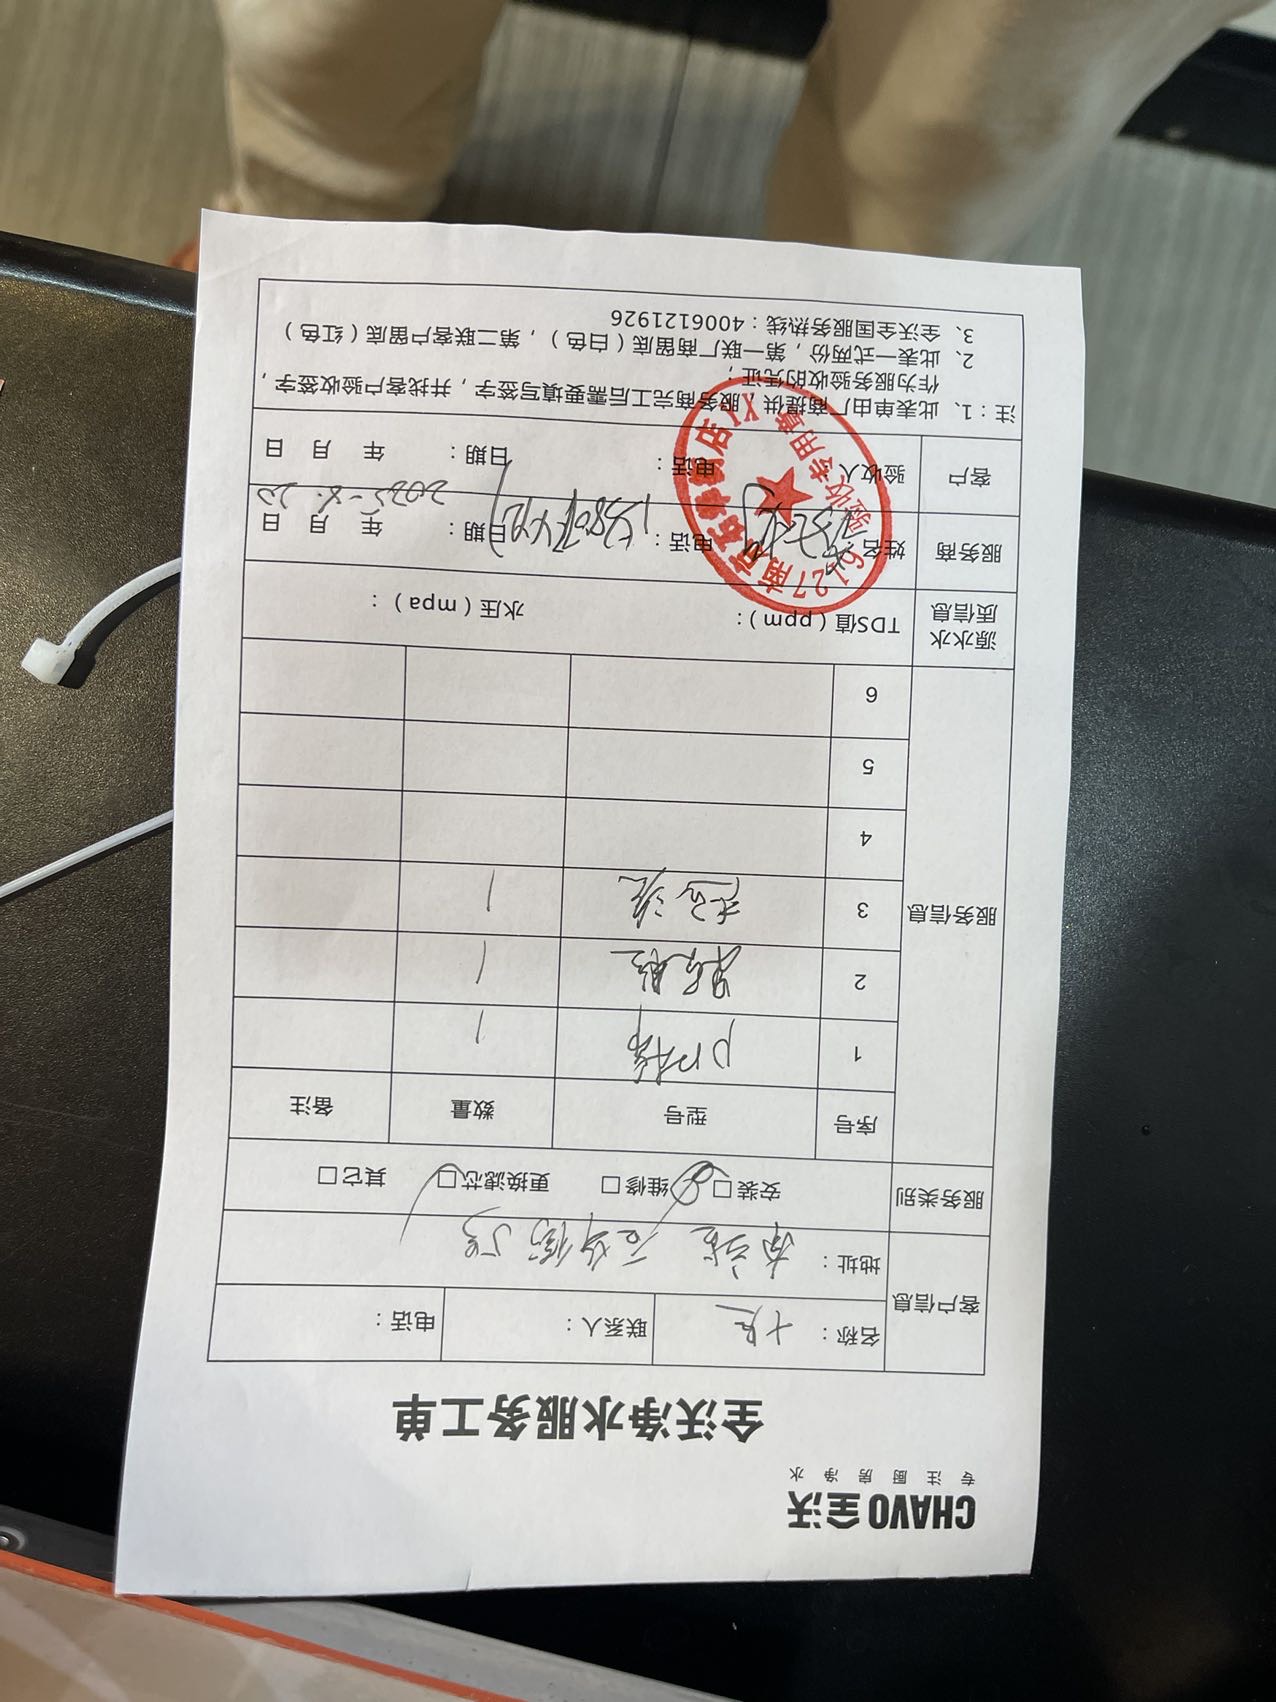 CHAVO全沃
专注厨房净水
全沃净水服务工单
客户信息 名称： 联系人： 电话：
地址： 石 5号
服务类别 安装□ 维修□ 更换滤芯□ 其它□
服务信息 序号 型号 数量 备注
1 PP棉 1
2 1
3 1
4
5
6
源水水质信息 TDS值（ppm）： 水压（mpa）：
服务商 姓名 电话： 日期： 年 月 日
客户 验收人 电话： 日期： 年 月 日
注：1、此表单由厂商提供，服务商完工后需要填写签字，并找客户验收签字，
作为服务验收的凭证；
2、此表一式两份，第一联厂商留底（白色），第二联客户留底（红色）
3、全沃全国服务热线：4006121926
6127南京石 店YX
验收专用章